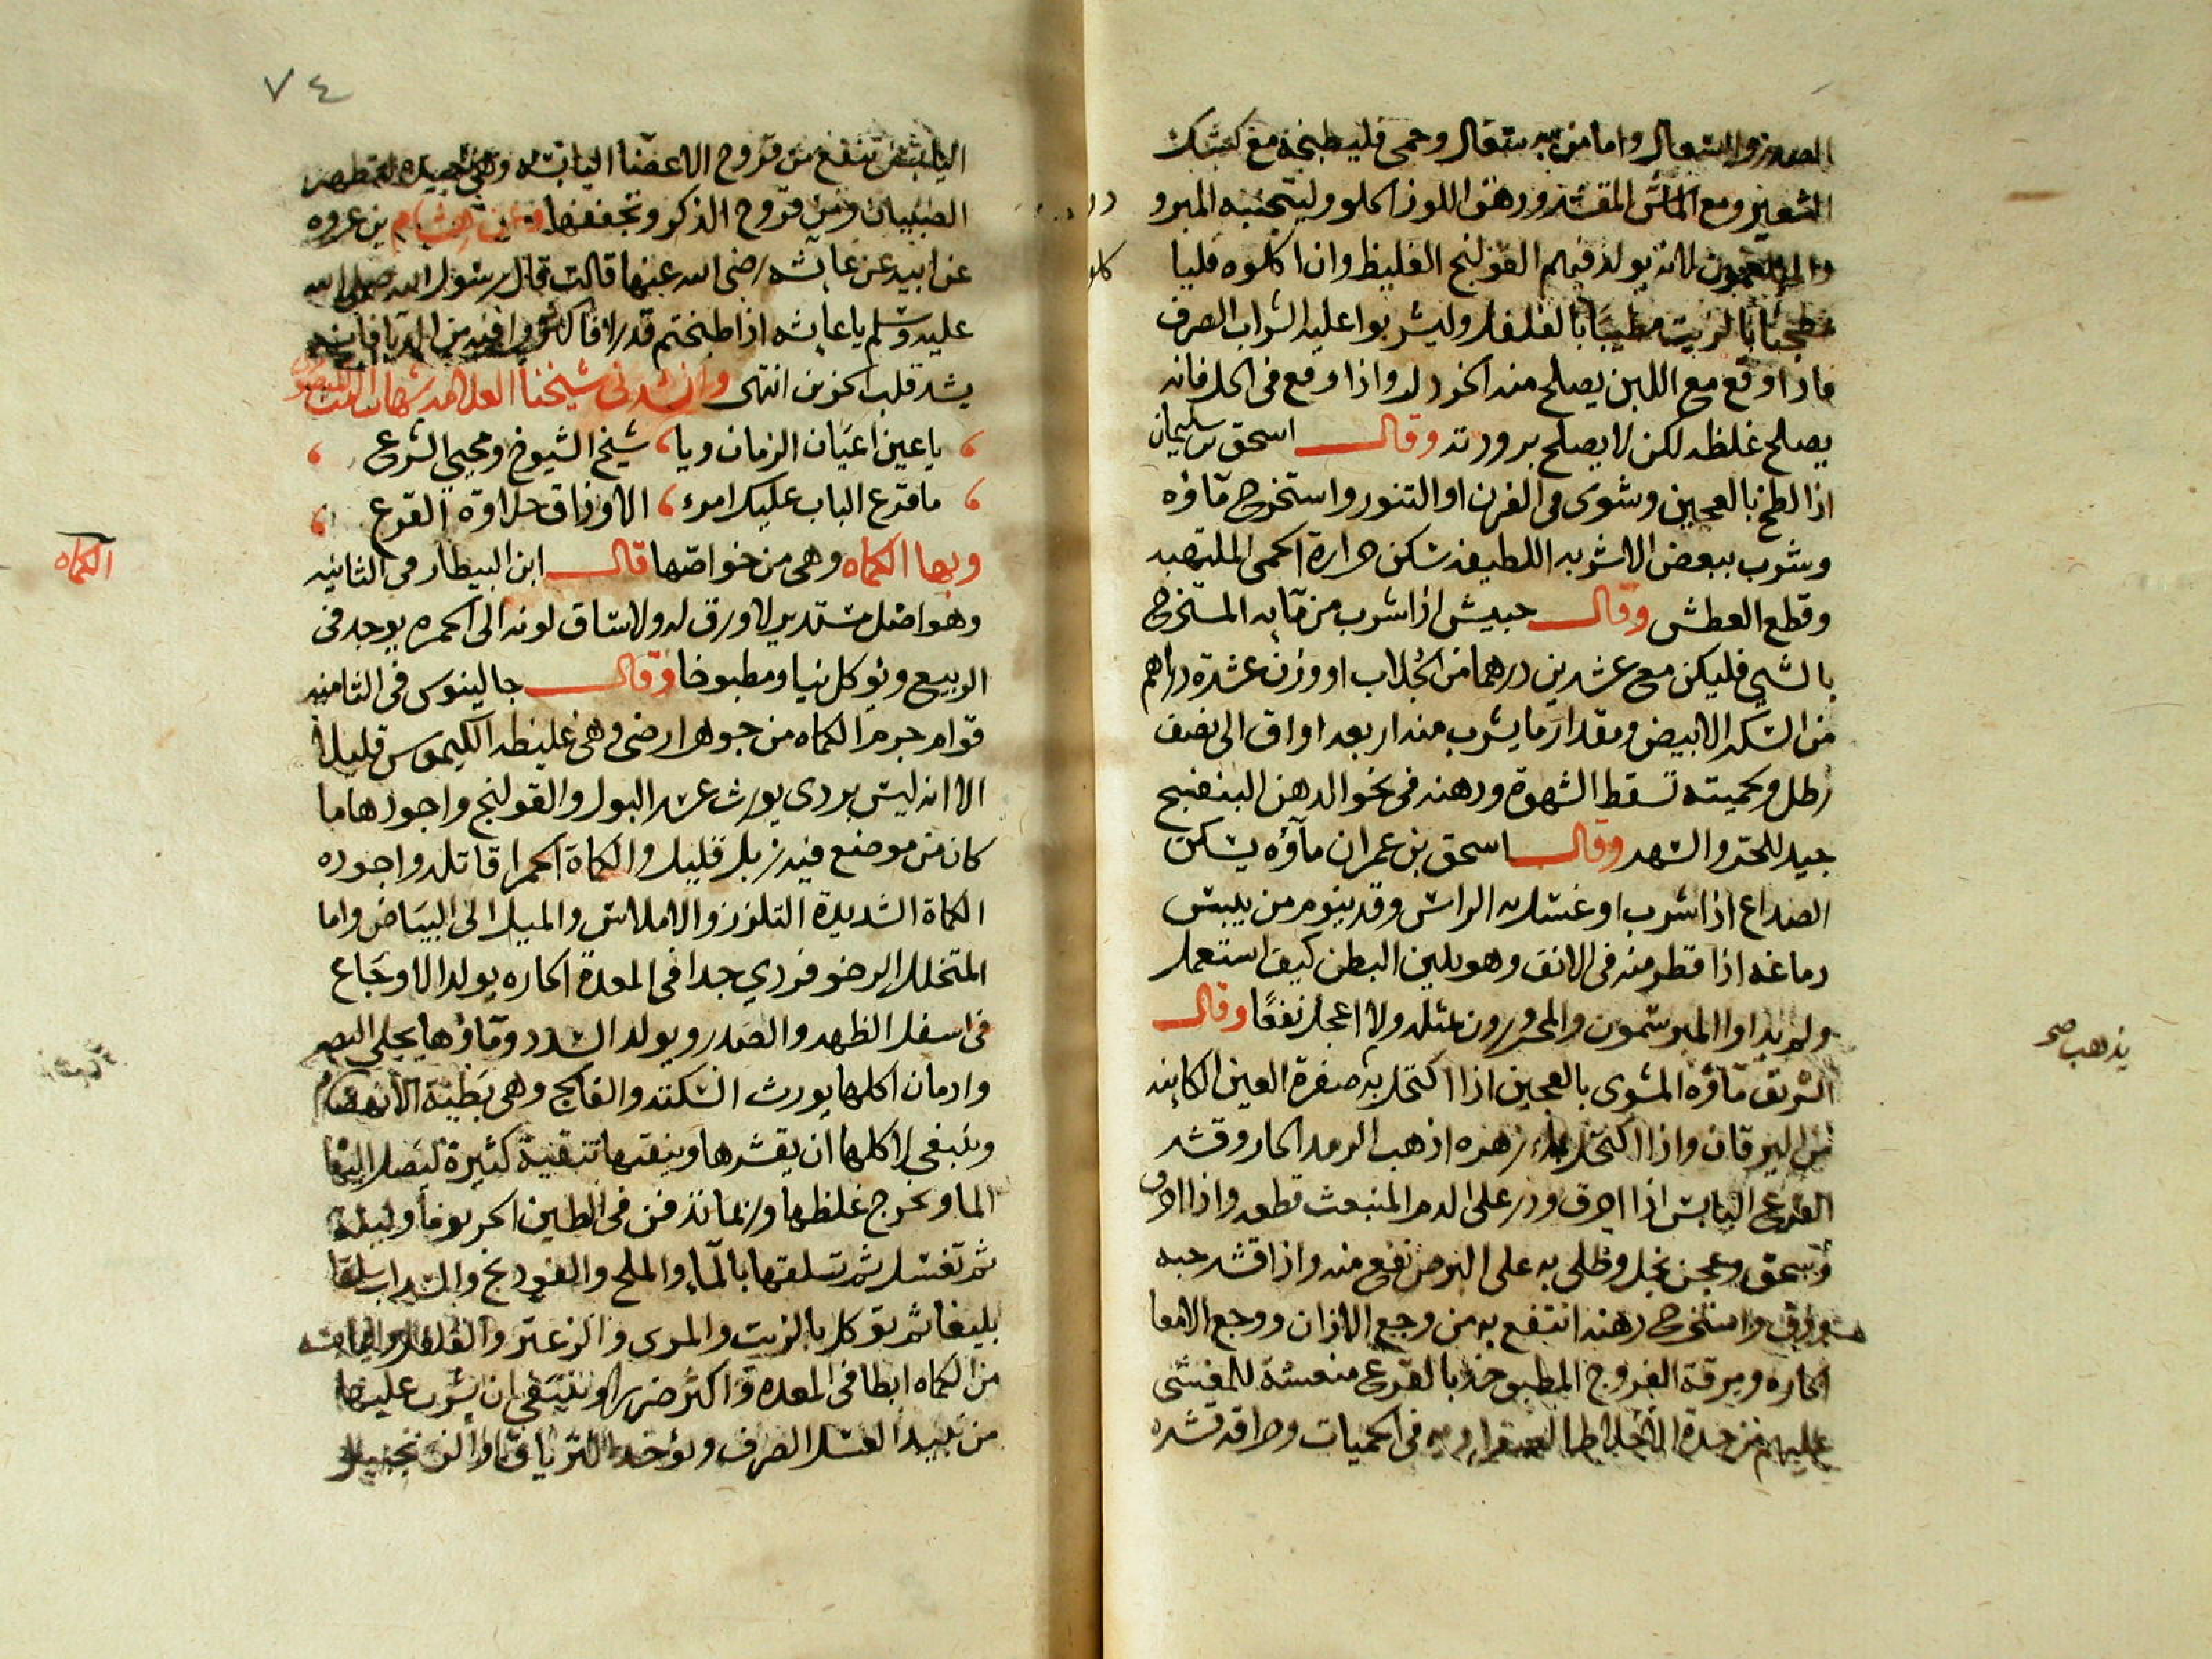 الصدر والسعال واما من به سعال وحمى فليطبخه مع كشك
الشعير ومع الماش المقشر ودهن اللوز الحلو وليتجنبه المبرود
والمبلغمون لانه يولد فيهم القولنج الغليظ وان اكلوه قليا
مطجنا بالزيت مطيبا بالفلفل وليشربوا عليه الشراب الصرف
فاذا وقع مع اللبن يصلح منه الخردل واذا وقع في الخل فانه
يصلح غلظه لكن لا يصلح برودته وقال اسحق بن سليمان
اذا لطخ بالعجين وشوى في الفرن او التنور واستخرج ماؤه
وشرب ببعض الاشربه اللطيفه سكن حرارة الحمى الملتهبه
وقطع العطش وقال حبيش اذا شرب من مايه المستخرج
بالشي فليكن مع عشرين درهما من الجلاب او وزن عشرة دراهم
من السكر الابيض ومقدار ما يشرب منه اربعه اواق الى نصف
رطل وبحميته تسقط الشهوة ودهنه في نحو الدهن البنفسج
جيد للحر والسهر وقال اسحق بن عمران ماؤه يسكن
الصداع اذا شرب او غسل به الراس وقد ينوم من يبس
دماغه اذا قطر منه في الانف وهو يلين البطن كيف استعمل
ولم يداوا المبرسمون والمحرورون بمثله ولا اعجل نفعا وقال
الشريف ماؤه المشوى بالعجين اذا اكتحل به صفرة العين الكاينه
من اليرقان واذا اكتحل بماء زهره اذهب الرمد الحار وقشر
القرع اليابس اذا احرق وذر على الدم المنبعث قطعه واذا احرق
وسحق وعجن بخل وطلى به على البرص نفع منه واذا قشر حبه
ودق واستخرج دهنه انتفع به من وجع الاذان ووجع الامعا
الحاره ومرقة الفروج المطبوخه بالقرع منعشة للمغشى
عليهم من حدة الاخلاط الصفراويه في الحميات وحراقة قشره
يذهب صح
٧٤
اليابس تنفع من قروح الاعضا اليابسه وهي جيده لتطهير
الصبيان ومن قروح الذكر وتجففها وعن هشام بن عروه
عن ابيه عن عايشه رضى الله عنها قالت قال رسول الله صلى الله
عليه وسلم يا عايشه اذا طبختم قدرا فاكثروا فيه من الدبا فانه
يشد قلب الحزين انتهى وانشدني شيخنا العلامه شهاب الدين المنصورى
يا عين اعيان الزمان ويا شيخ الشيوخ ومحيي الشرع
ما قرع الباب عليك امرء الا وذاق حلاوة القرع
وبها الكماه وهي من خواصها قال ابن البيطار في الثانيه
وهو اصل مستدير لا ورق له ولا ساق لونه الى الحمره يوجد في
الربيع ويوكل نيا ومطبوخا وقال جالينوس في الثامنه
قوام جرم الكماه من جوهر ارضى وهي غليظه الكيموس قليلا
الا انه ليس بردى يورث عسر البول والقولنج واجودها ما
كان من موضع فيه زبل قليل والكماة الحمرا قاتله واجوده
الكماة الشديدة التلزز والاملاس والميل الى البياض واما
المتخلل الرخو فردي جدا في المعدة الحاره يولد الاوجاع
في اسفل الظهر والصدر ويولد السدد وماؤها يجلى البصر
وادمان اكلها يورث السكته والفالج وهي بطيئة الانهضام
وينبغي لاكلها ان يقشرها وينقيها تنقية كثيرة ليصل اليها
الما ويخرج غلظها وربما تدفن في الطين الحر يوما وليلة
ثم تغسل ثم تسلقها بالما والملح والفودنج والسداب سلقا
بليغا ثم توكل بالزيت والمرى والزعتر والفلفل
من الكماه ابطا في المعده واكثر ضررا وينبغي ان يشرب عليها
من نبيد العسل الصرف ويؤخذ الترياق او الزنجبيل
الكماه